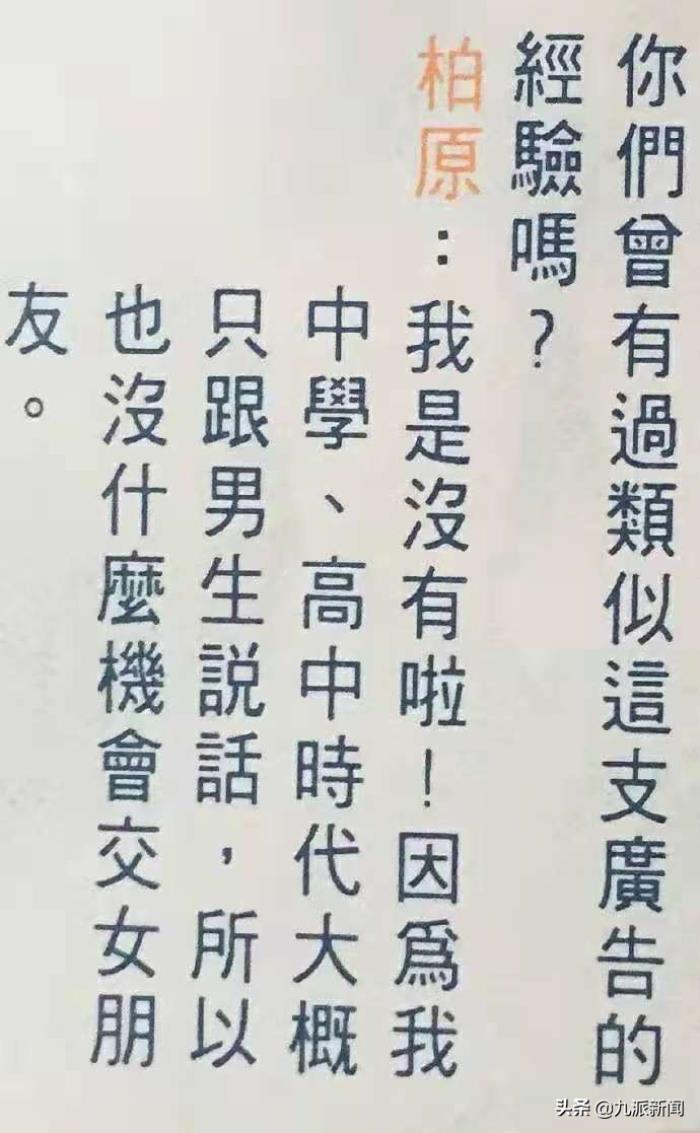 你們曾有過類似這支廣告的
經驗嗎?
柏原:我是沒有啦!因爲我
中學、高中時代大概
只跟男生説話,所以
也沒什麼機會交女朋
友。
头条 @九派新闻